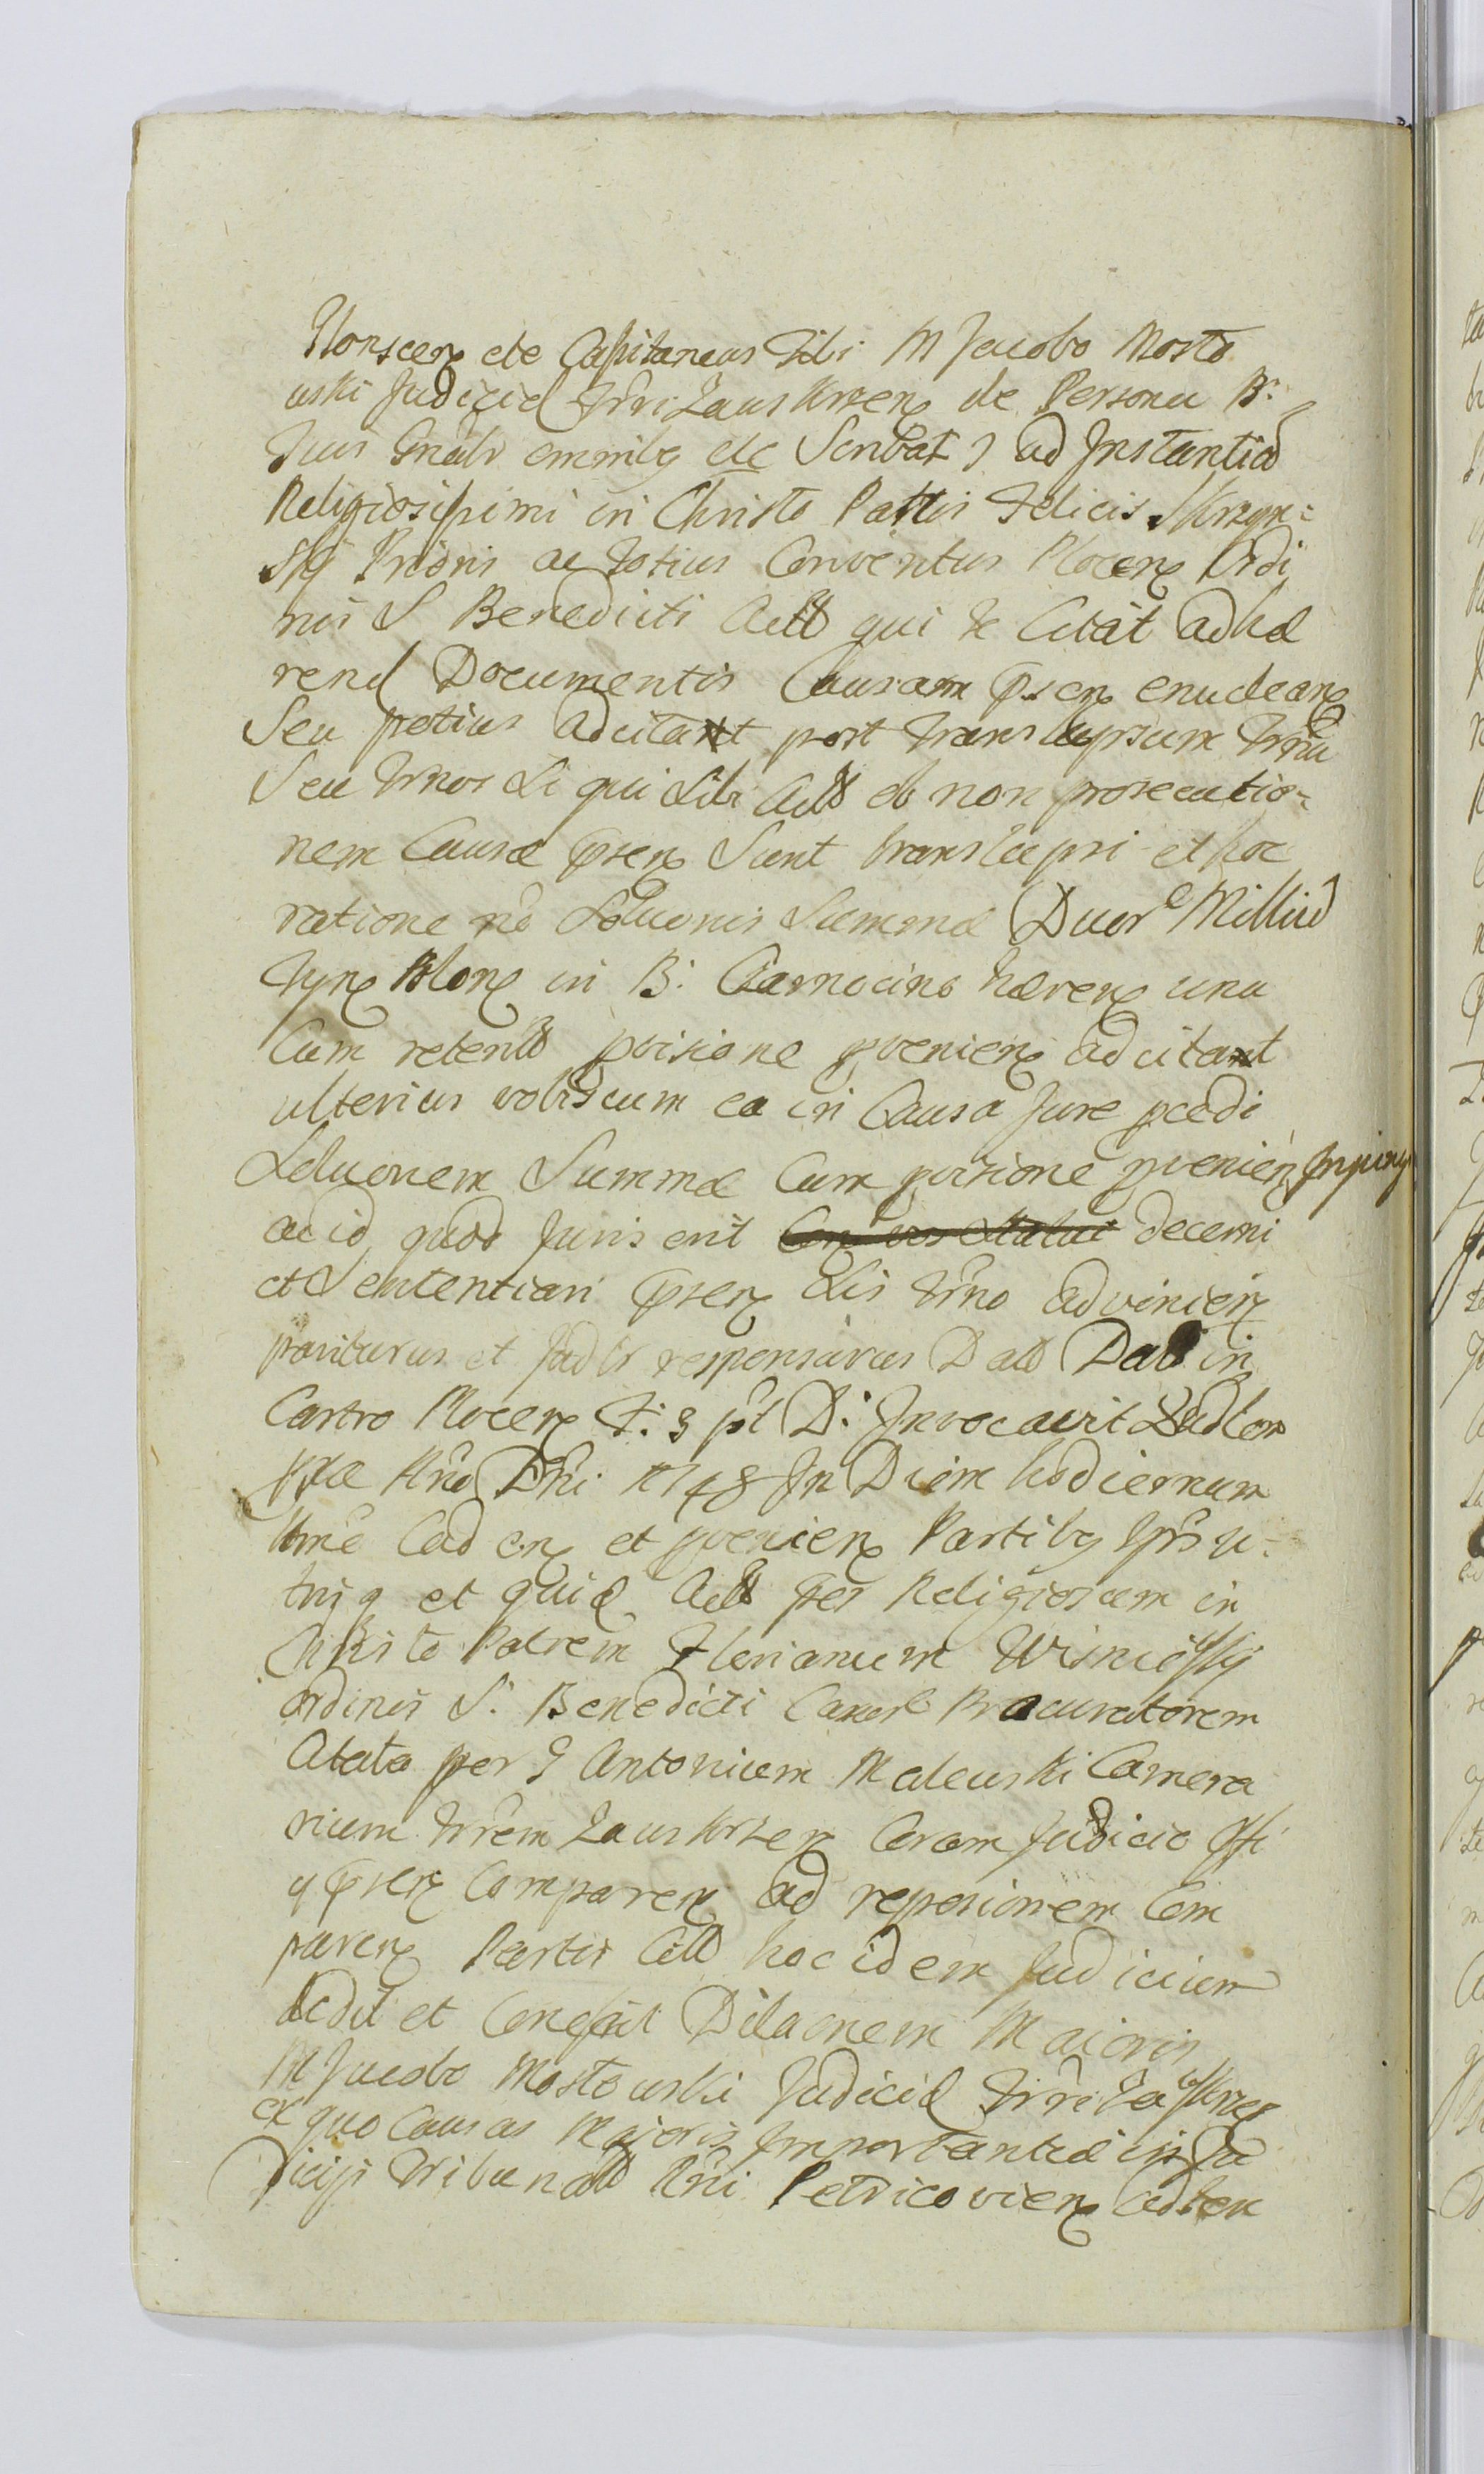 Plonscen etc Capitaneus Tibi M Jacobo Mosto
uski Judici Trri Zauskrzen de Persona B:
tuis Gnalr omnibg etc Scribat ad Instantia
Religiosissimi in Christo Patris Felicis Skrzyn=
skj Prioris ac totius Conventus Plocen Ordi
nis S Benedicti Act qui te Citat adhæ
rend Documentis Causam psen enuclean
Seu potius adcitat post translapsum Trm
Seu Trnos Si qui Sibi Act ob non prosecutio=
nem Causæ psen Sunt translapsi et hoc
ratione no Soluonis Summæ Duor Milliu
Tyn Plon in B: Czarnocino hæren una
Cum retent pvisione pvenien adcitat
ulterius vobiscum ea in Causa Jure pcedi
Soluonem Summæ Cum pvisione pvenien Injung
ac id quod Juris erit decerni
et Sententiari psen Sis Trno advenien
pariturus et Judlr responsurus Datt Datt in
Castro Plocen F: 3 pt D: Invocavit Quadlem
pxa Ano Dni 1748 In Diem hodiernum
Ume Caden et pvenien Partibg Ipris u=
trisq et quid Act per Religiosum in
Christo Patrem Florianum Wisniesky
ordinis S. Benedicti Procuratorem
Citata per G Antonium Maleuski Camera
rium Trrem Zauskrzen Coram Judicio Offi
q psen Comparen ad reposionem Com
paren Partis Citt hoc idem Judicium
dedit et Concessit Dilaonem Maioris
M Jacobo Mostouski Judici Trri Zauskrzen
ex quo Causas Majoris Importantiæ in Ju
dicijs Tribunatt Rni Petricovien